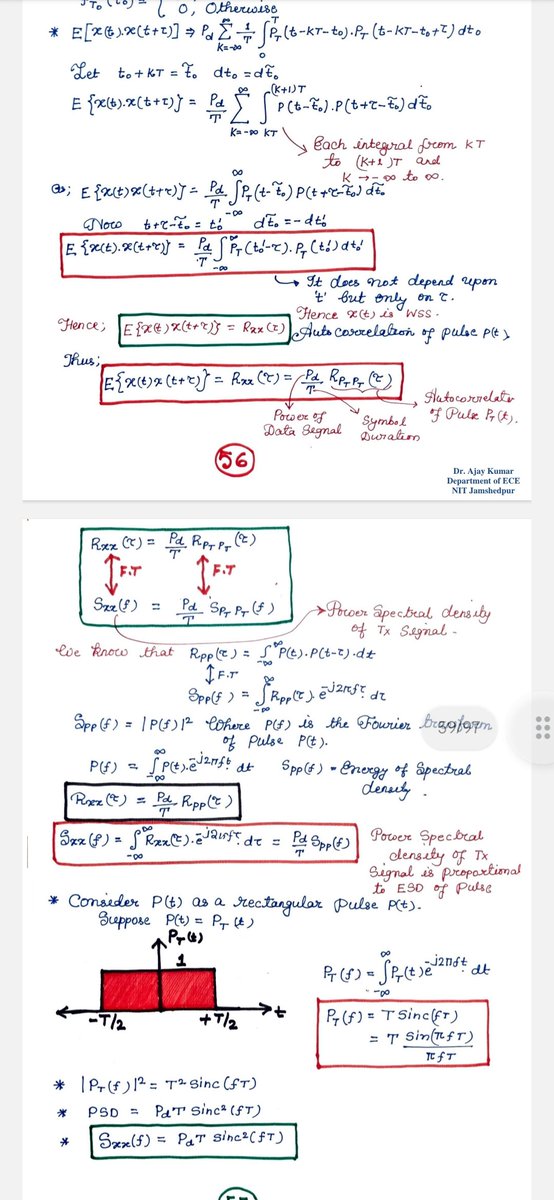 0; Otherwise
* E[x(t).x(t+τ)] ⇒ Pd Σ_{K=-∞}^{∞} 1/T ∫_0^T P_T(t-KT-to).P_T(t-KT-to+τ)dto
Let to+KT = t̃o dto = dt̃o
E{x(t).x(t+τ)} = Pd/T Σ_{K=-∞}^{∞} ∫_{KT}^{(K+1)T} P(t-t̃o).P(t+τ-t̃o)dt̃o
Each integral from KT
to (K+1)T and
K → -∞ to ∞.
Or; E{x(t)x(t+τ)} = Pd/T ∫_{-∞}^{∞} P_T(t-t̃o)P(t+τ-t̃o)dt̃o
Now t+τ-t̃o = to' dt̃o = -dto'
E{x(t).x(t+τ)} = Pd/T ∫_{-∞}^{∞} P_T(to'-τ).P_T(to')dto'
It does not depend upon
't' but only on τ.
Hence x(t) is WSS.
Hence; E{x(t)x(t+τ)} = Rxx(τ) Auto correlation of pulse P(t)
Thus;
E{x(t)x(t+τ)} = Rxx(τ) = Pd/T R_{P_T P_T}(τ)
Power of
Data Signal
Symbol
Duration
Autocorrelate
of Pulse P_T(t).
56
Dr. Ajay Kumar
Department of ECE
NIT Jamshedpur
Rxx(τ) = Pd/T R_{P_T P_T}(τ)
F.T F.T
Sxx(f) = Pd/T S_{P_T P_T}(f)
Power Spectral density
of Tx Signal.
We know that Rpp(τ) = ∫_{-∞}^{∞} P(t).P(t-τ).dt
F.T
Spp(f) = ∫_{-∞}^{∞} Rpp(τ).e^{-j2πfτ} dτ
Spp(f) = |P(f)|² Where P(f) is the Fourier
of Pulse P(t).
39/97
P(f) = ∫_{-∞}^{∞} P(t).e^{-j2πft} dt Spp(f) = Energy of Spectral
density.
Rxx(τ) = Pd/T Rpp(τ)
Sxx(f) = ∫_{-∞}^{∞} Rxx(τ).e^{-j2πfτ} dτ = Pd/T Spp(f)
Power Spectral
density of Tx
Signal is proportional
to ESD of Pulse
* Consider P(t) as a rectangular pulse P(t).
Suppose P(t) = P_T(t)
P_T(t)
1
-T/2 +T/2 t
P_T(f) = ∫_{-∞}^{∞} P_T(t)e^{-j2πft} dt
P_T(f) = T Sinc(fT)
= T Sin(πfT)/πfT
* |P_T(f)|² = T² Sinc(fT)
* PSD = PdT Sinc²(fT)
* Sxx(f) = PdT Sinc²(fT)